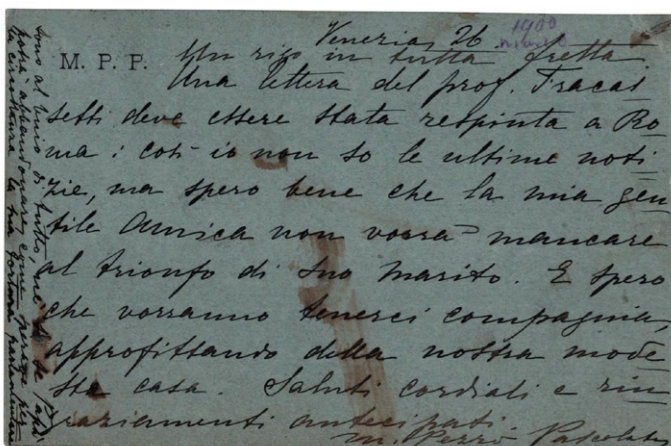 M. P. P.
Venezia, 26
1900
Un rigo in tutta fretta.
Una lettera del prof. Fracas
setti deve essere stata respinta a Ro
ma: così io non so le ultime noti
zie, ma spero bene che la mia gen
tile Amica non vorrà mancare
al trionfo di Suo Marito. E spero
che vorranno tenerci compagnia,
approfittando della nostra mode
sta casa. Saluti cordiali e rin
graziamenti anticipati
M. Pezzé Pascolato
Sono al buio di tutto, né so se